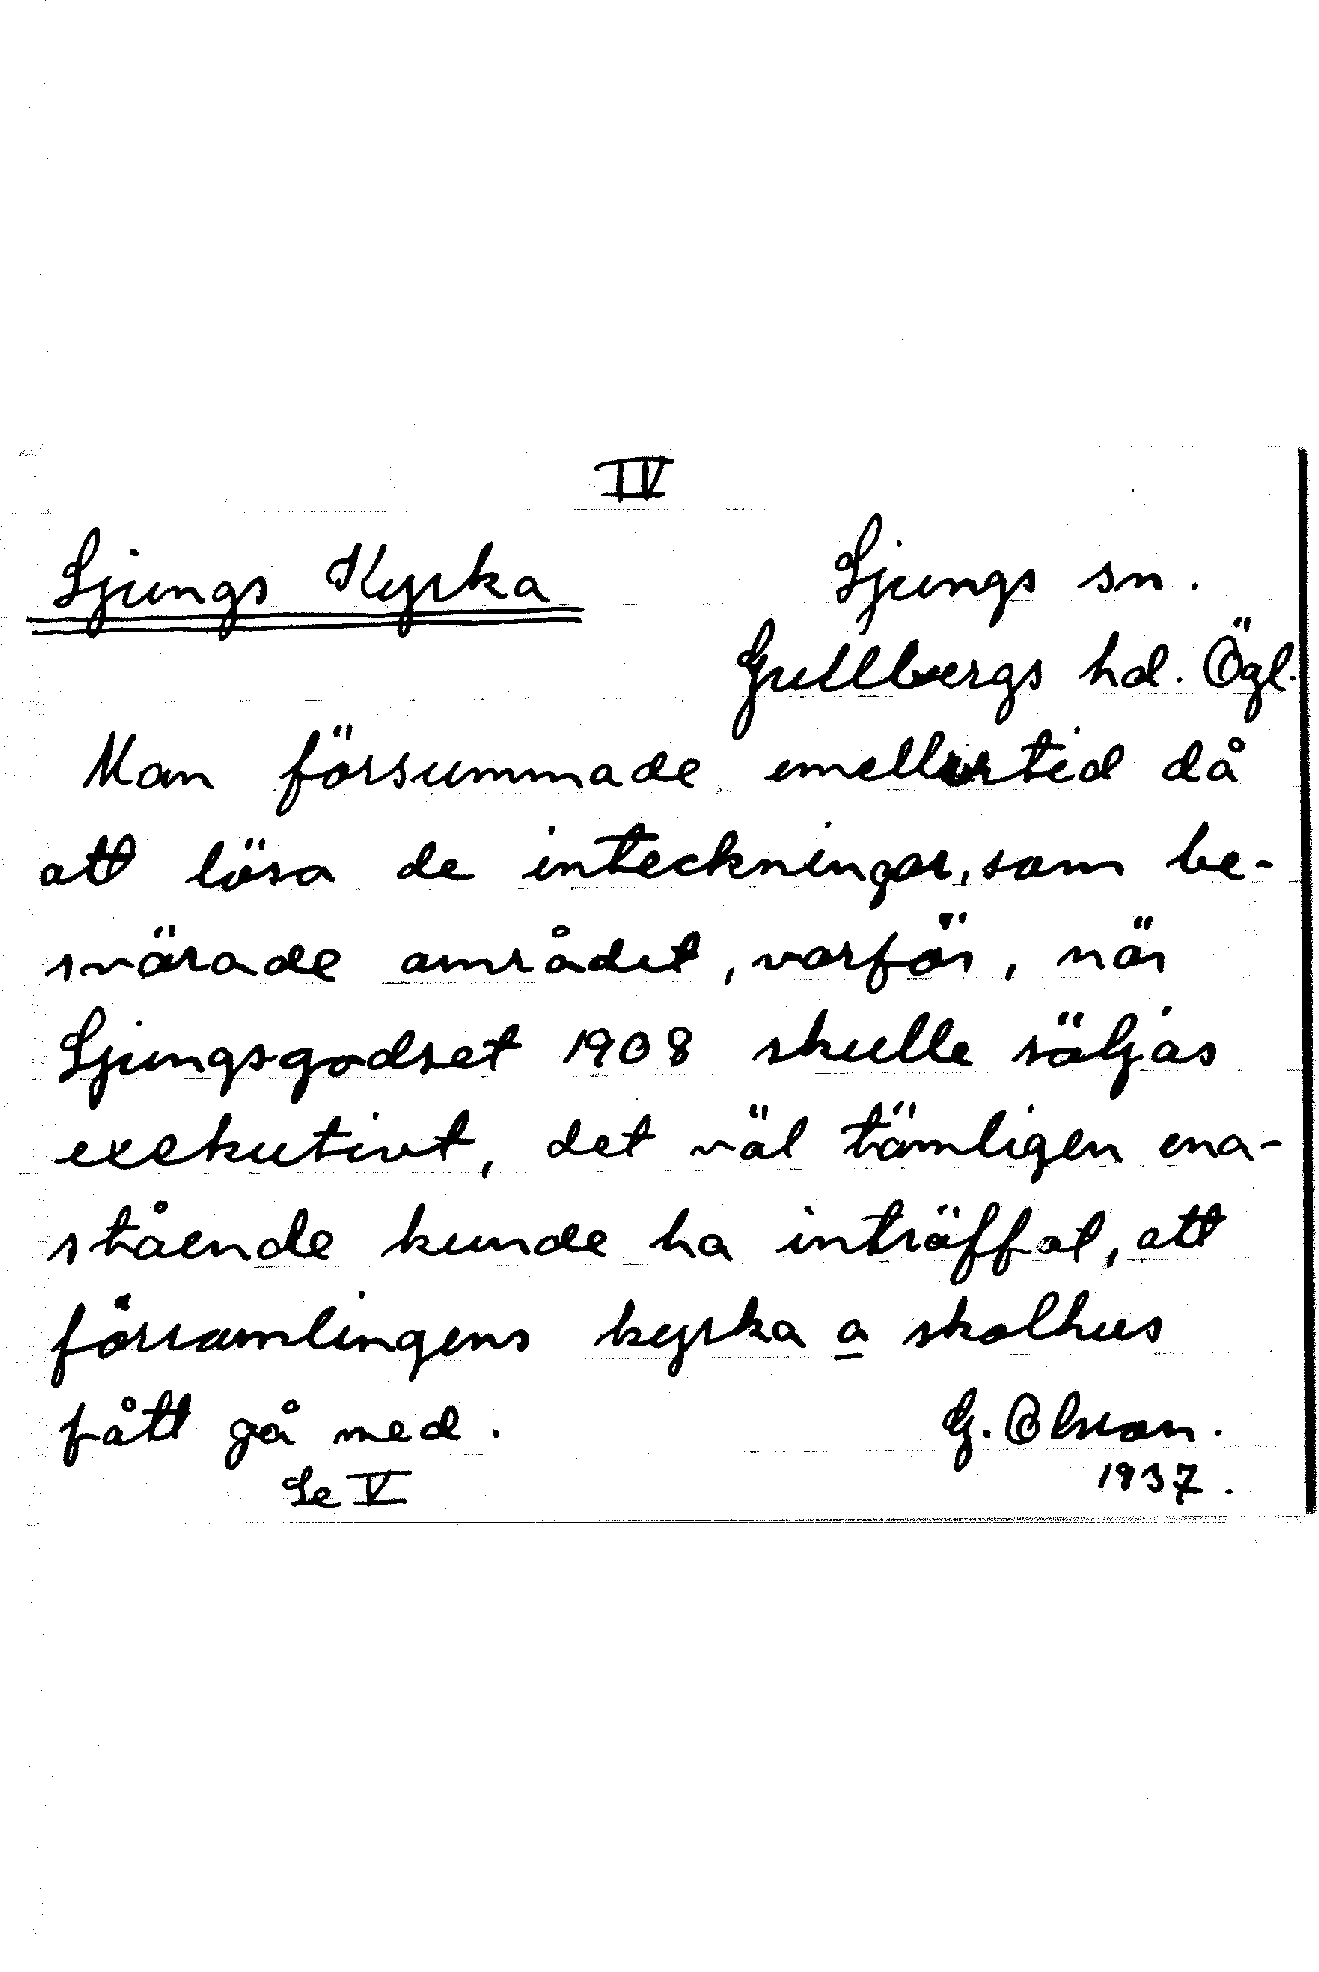 IV
Ljungs Kyrka Ljungs sn.
Gullbergs hd. Ögl.
Man försummade emellertid då
att lösa de inteckningar, som be-
svärade området, varför, när
Ljungsgodset 1908 skulle säljas
exekutivt, det väl tämligen ena-
stående kunde ha inträffat, att
församlingens kyrka a skolhus
fått gå med. G. Olsson.
Se V 1937.